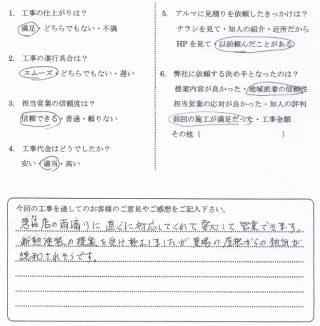 1. 工事の仕上がりは？
満足・どちらでもない・不満
2. 工事の進行具合は？
スムーズ・どちらでもない・遅い
3. 担当営業の信頼度は？
信頼できる・普通・頼りない
4. 工事代金はどうでしたか？
安い・適当・高い
5. アルマに見積りを依頼したきっかけは？
チラシを見て・知人の紹介・近所だから
HPを見て・以前頼んだことがある
6. 弊社に依頼する決め手となったのは？
提案内容が良かった・地域密着の信頼性
担当営業の応対が良かった・知人の評判
前回の施工が満足だった・工事金額
その他（　　）
今回の工事を通してのお客様のご意見やご感想をご記入下さい。
店の雨漏りに直ぐに対応してくれて安心して営業できます。
断熱塗装の提案を受け施工しましたが夏場の屋根からの熱気が
緩和されそうです。